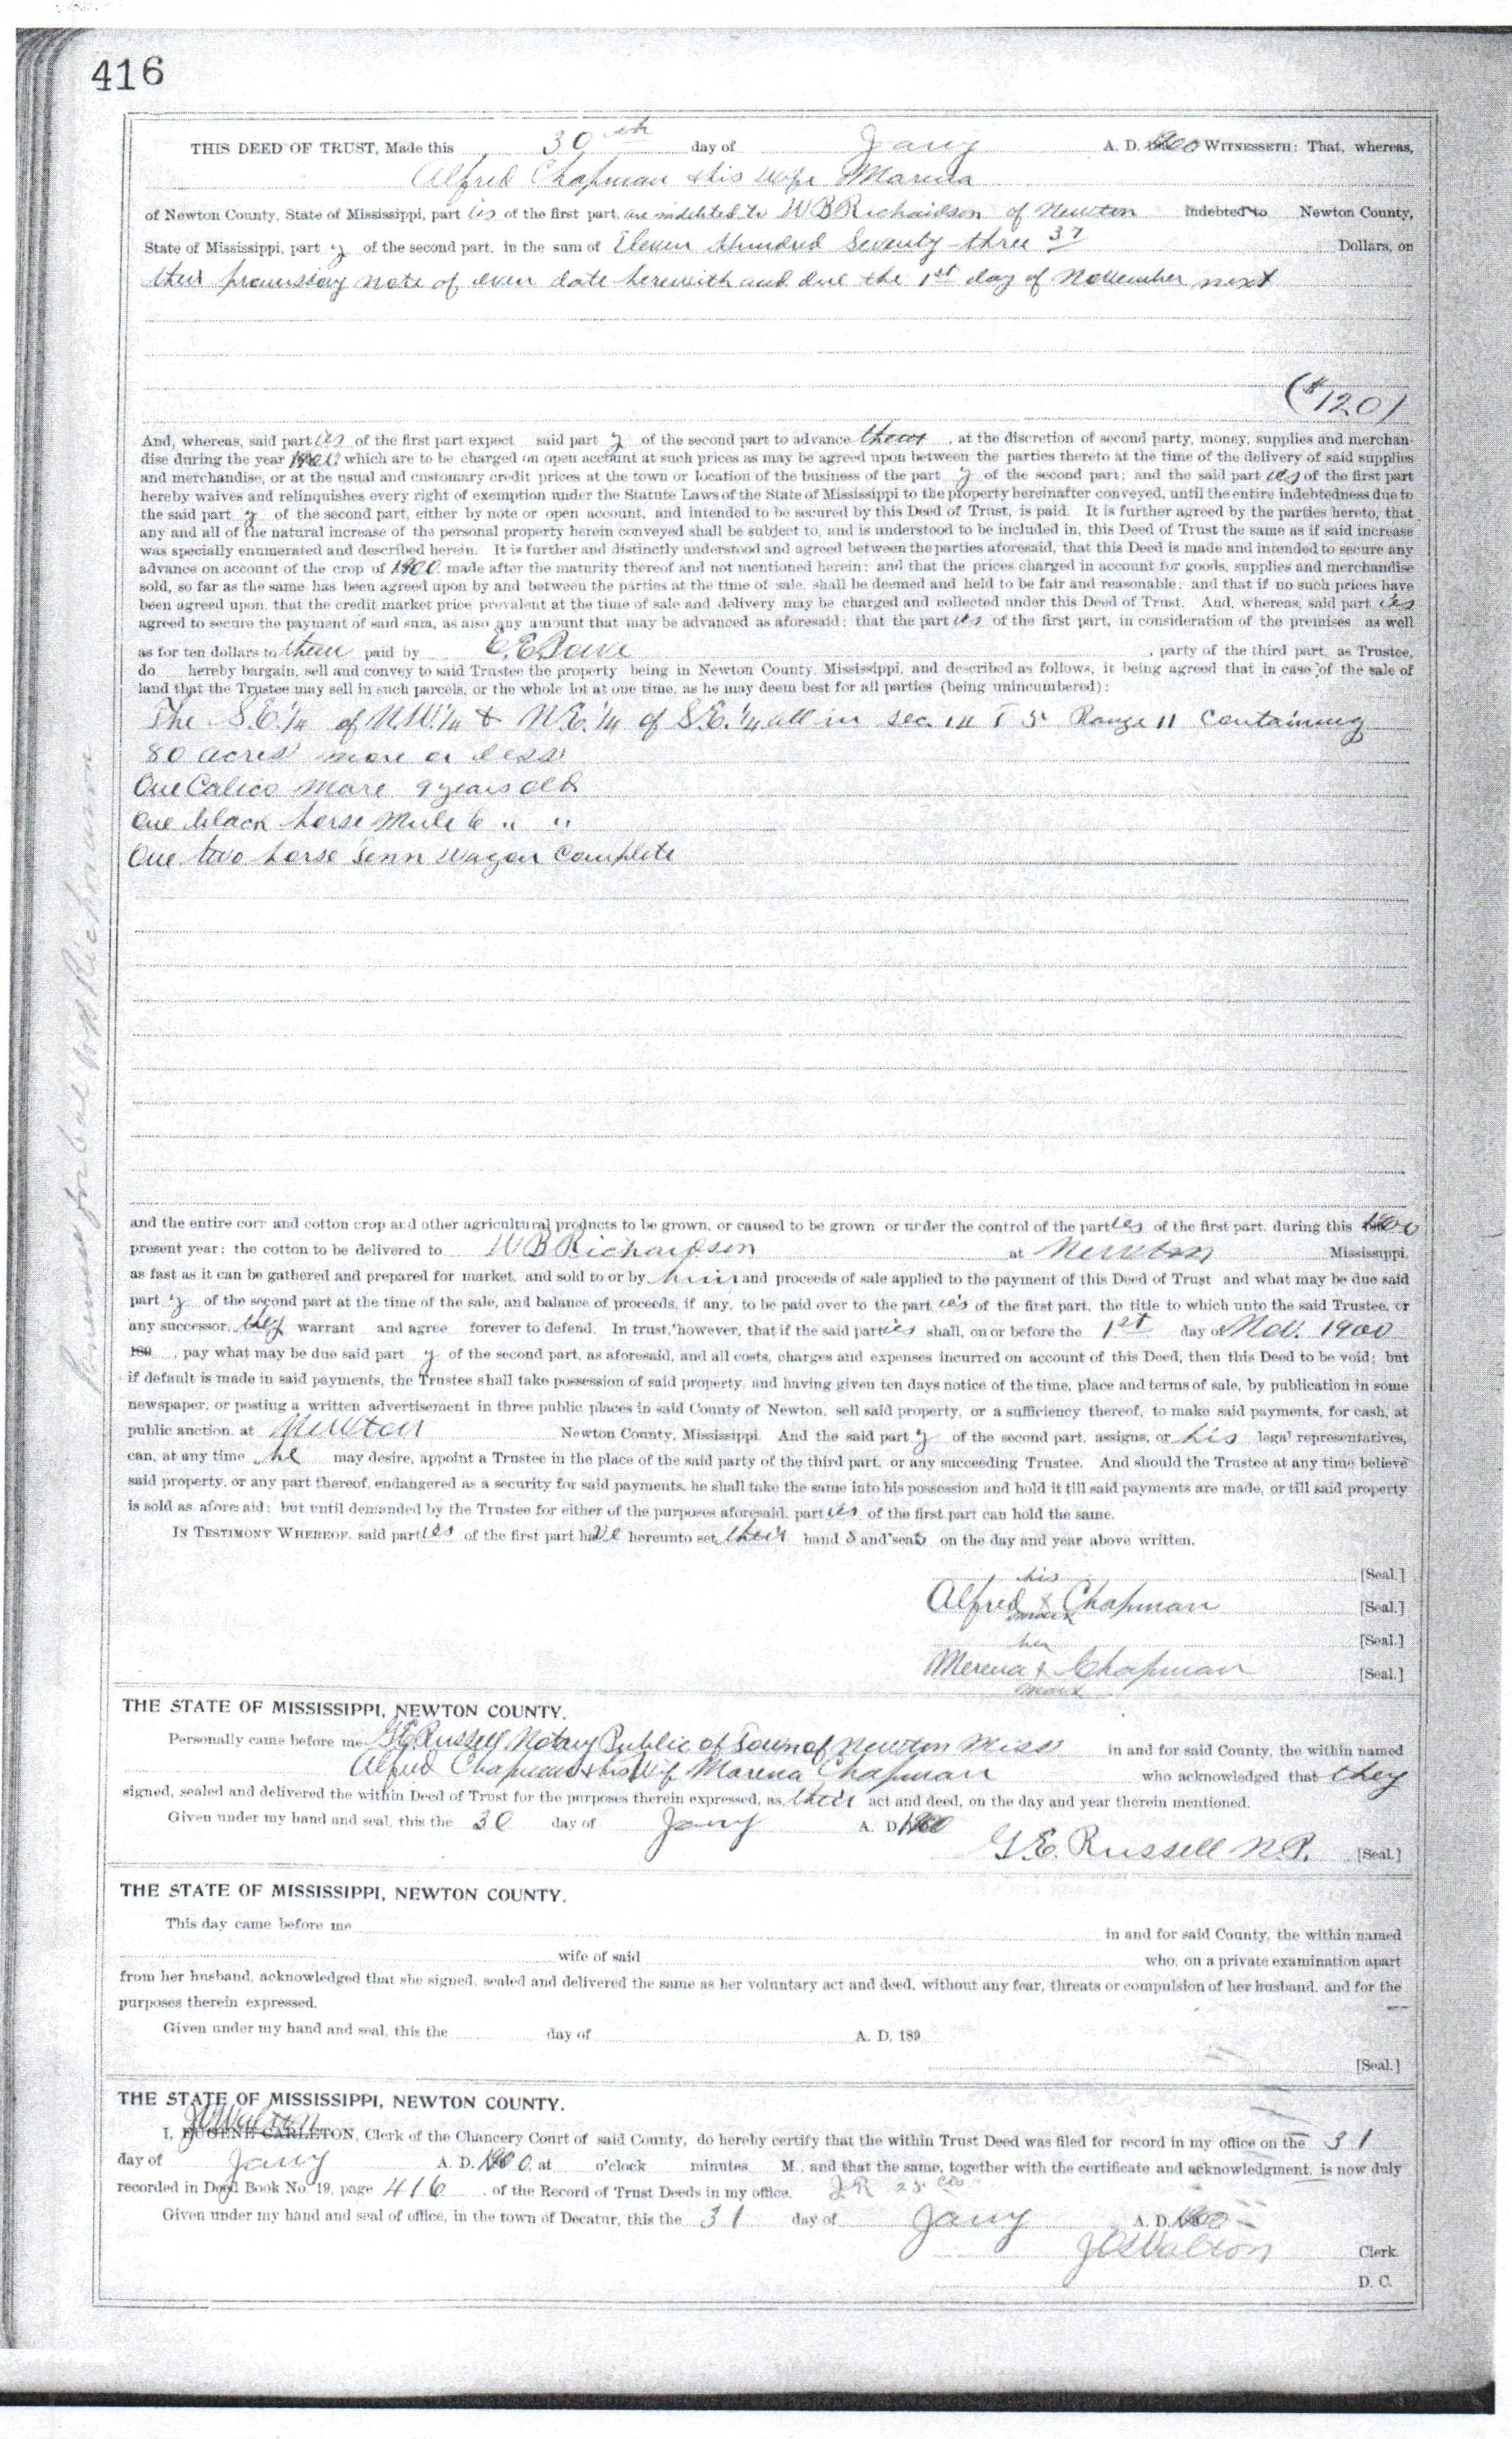 416
THIS DEED OF TRUST, Made this 30th day of Jany A. D. 1900 WITNESSETH: That, whereas,
Alfred Chapman & his wife Marena
of Newton County, State of Mississippi, part ies of the first part, are indebted to W B Richardson of Newton indebted to Newton County,
State of Mississippi, part y of the second part, in the sum of Eleven Hundred Seventy-three 37 Dollars, on
their promissory note of even date herewith and due the 1st day of November next
($120)
And, whereas, said part ies of the first part expect said part y of the second part to advance them, at the discretion of second party, money, supplies and merchan-
dise during the year 1900, which are to be charged on open account at such prices as may be agreed upon between the parties thereto at the time of the delivery of said supplies
and merchandise, or at the usual and customary credit prices at the town or location of the business of the part y of the second part; and the said part ies of the first part
hereby waives and relinquishes every right of exemption under the Statute Laws of the State of Mississippi to the property hereinafter conveyed, until the entire indebtedness due to
the said part y of the second part, either by note or open account, and intended to be secured by this Deed of Trust, is paid. It is further agreed by the parties hereto, that
any and all of the natural increase of the personal property herein conveyed shall be subject to, and is understood to be included in, this Deed of Trust the same as if said increase
was specially enumerated and described herein. It is further and distinctly understood and agreed between the parties aforesaid, that this Deed is made and intended to secure any
advance on account of the crop of 1900, made after the maturity thereof and not mentioned herein; and that the prices charged in account for goods, supplies and merchandise
sold, so far as the same has been agreed upon by and between the parties at the time of sale, shall be deemed and held to be fair and reasonable; and that if no such prices have
been agreed upon, that the credit market price prevalent at the time of sale and delivery may be charged and collected under this Deed of Trust. And, whereas, said part ies
agreed to secure the payment of said sum, as also any amount that may be advanced as aforesaid; that the part ies of the first part, in consideration of the premises as well
as for ten dollars to them paid by , party of the third part, as Trustee,
do hereby bargain, sell and convey to said Trustee the property being in Newton County, Mississippi, and described as follows, it being agreed that in case of the sale of
land that the Trustee may sell in such parcels, or the whole lot at one time, as he may deem best for all parties (being unincumbered):
The S.E. 1/4 of N.W. 1/4 & N.E. 1/4 of S.E. 1/4 all in Sec. T 5 Range 11 Containing
80 acres more or less
One Calico Mare 9 years old
One black horse Mule 6 " "
One two horse Tenn Wagon Complete
and the entire corn and cotton crop and other agricultural products to be grown, or caused to be grown or under the control of the parties of the first part, during this 1900
present year; the cotton to be delivered to W B Richardson at Newton Mississippi,
as fast as it can be gathered and prepared for market, and sold to or by him and proceeds of sale applied to the payment of this Deed of Trust and what may be due said
part y of the second part at the time of the sale, and balance of proceeds, if any, to be paid over to the part ies of the first part, the title to which unto the said Trustee, or
any successor, they warrant and agree forever to defend. In trust, however, that if the said parties shall, on or before the 1st day of Nov. 1900
189 , pay what may be due said part y of the second part, as aforesaid, and all costs, charges and expenses incurred on account of this Deed, then this Deed to be void; but
if default is made in said payments, the Trustee shall take possession of said property, and having given ten days notice of the time, place and terms of sale, by publication in some
newspaper, or posting a written advertisement in three public places in said County of Newton, sell said property, or a sufficiency thereof, to make said payments, for cash, at
public auction, at Newton Newton County, Mississippi. And the said part y of the second part, assigns, or his legal representatives,
can, at any time he may desire, appoint a Trustee in the place of the said party of the third part, or any succeeding Trustee. And should the Trustee at any time believe
said property, or any part thereof, endangered as a security for said payments, he shall take the same into his possession and hold it till said payments are made, or till said property
is sold as afore aid; but until demanded by the Trustee for either of the purposes aforesaid, part ies of the first part can hold the same.
IN TESTIMONY WHEREOF, said parties of the first part have hereunto set their hand s and seals on the day and year above written.
his [Seal.]
Alfred x Chapman [Seal.]
mark
her [Seal.]
Merena x Chapman [Seal.]
mark
THE STATE OF MISSISSIPPI, NEWTON COUNTY.
Personally came before me G.E. Russell Notary Public of Town of Newton Miss in and for said County, the within named
Alfred Chapman & his Wife Marena Chapman who acknowledged that they
signed, sealed and delivered the within Deed of Trust for the purposes therein expressed, as their act and deed, on the day and year therein mentioned.
Given under my hand and seal, this the 30 day of Jany A. D. 1900
G. E. Russell N. P. [Seal.]
THE STATE OF MISSISSIPPI, NEWTON COUNTY.
This day came before me in and for said County, the within named
wife of said who, on a private examination apart
from her husband, acknowledged that she signed, sealed and delivered the same as her voluntary act and deed, without any fear, threats or compulsion of her husband, and for the
purposes therein expressed.
Given under my hand and seal, this the day of A. D. 189
[Seal.]
THE STATE OF MISSISSIPPI, NEWTON COUNTY.
J O Walton
I, EUGENE CARLETON, Clerk of the Chancery Court of said County, do hereby certify that the within Trust Deed was filed for record in my office on the 31
day of Jany A. D. 1900, at o'clock minutes M., and that the same, together with the certificate and acknowledgment, is now duly
recorded in Deed Book No. 19, page 416 , of the Record of Trust Deeds in my office.
Given under my hand and seal of office, in the town of Decatur, this the 31 day of Jany A. D. 1900
J O Walton Clerk.
D. C.